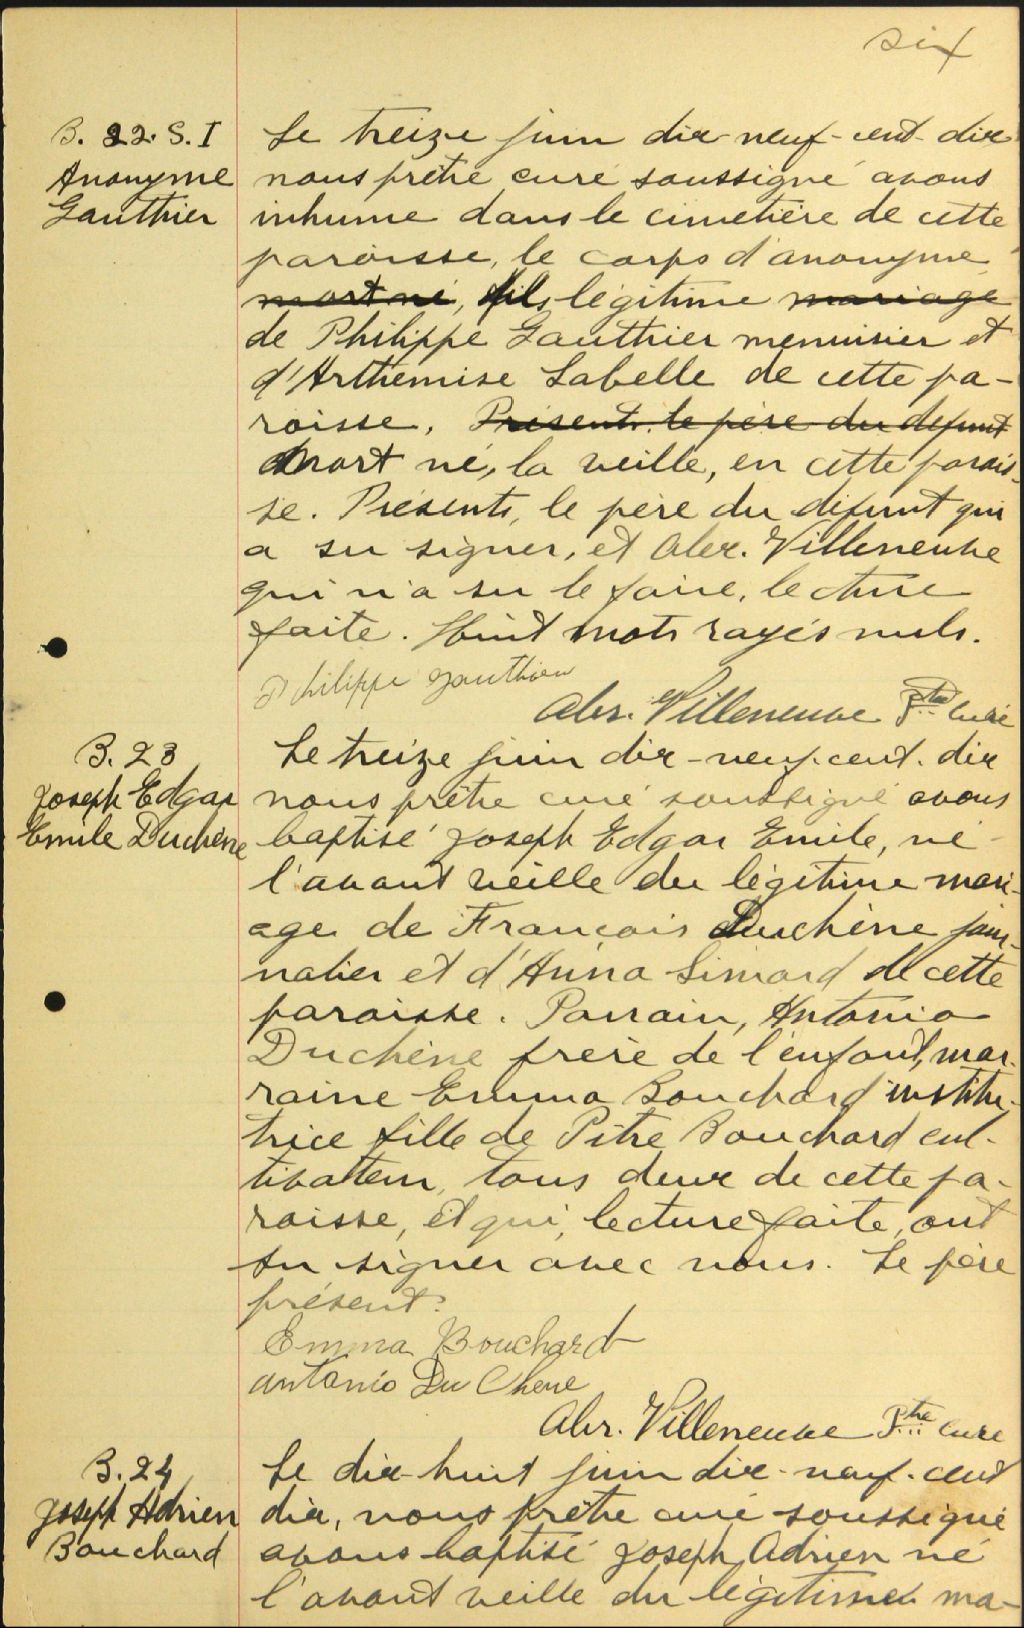 six
B. 22. S. I
Anonyme
Gauthier
Le treize juin dix-neuf-cent-dix
nous prêtre curé soussigné avons
inhumé dans le cimetière de cette
paroisse, le corps d'anonyme
mort né, fils légitime mariage
de Philippe Gauthier menuisier et
d'Arthémise Labelle de cette pa-
roisse. Présents le père du défunt
Mort né, la veille, en cette parois-
se. Présents, le père du défunt qui
a su signer, et Alex. Villeneuve
qui n'a su le faire, lecture
faite. Huit mots rayés nuls.
Philippe Gauthier
Abr. Villeneuve Ptre curé
B. 23
Joseph Edgar
Emile Duchêne
Le treize juin dix-neuf-cent-dix
nous prêtre curé soussigné avons
baptisé Joseph Edgar Emile, né
l'avant veille du légitime mari-
age de François Duchêne jour-
nalier et d'Anna Simard de cette
paroisse. Parrain, Antonio
Duchêne frère de l'enfant, mar-
raine Emma Bouchard institu-
trice fille de Pitre Bouchard cul-
tivateur, tous deux de cette pa-
roisse, et qui, lecture faite, ont
su signer avec nous. Le père
présent.
Emma Bouchard
Antonio DuChene
Abr. Villeneuve Ptre curé
B. 24
Joseph Adrien
Bouchard
Le dix-huit juin dix-neuf-cent
dix, nous prêtre curé soussigné
avons baptisé Joseph Adrien né
l'avant veille du légitime ma-